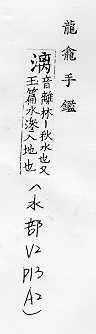 龍龕手鑑
漓
音離林一秋水也又
玉篇水滲入地也
(水部
V2
P13
A2)